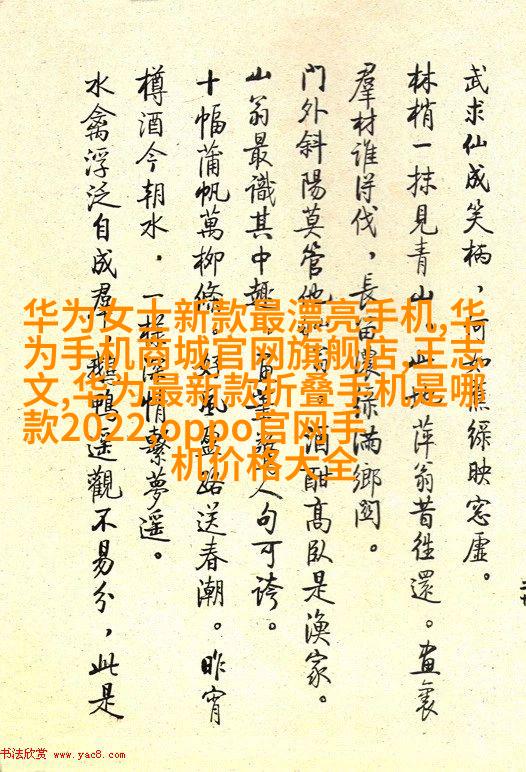 武求仙成笑柄，何如蕉綠映窓虛。
林梢一抹見青山，此地萍翁昔往還。畫裏
羣材誰得伐，長留濃綠滿鄉關。
門外斜陽莫管他，酒酣高臥是漁家。
山翁最識其中趣，人句可誇。
十幅蒲帆萬柳條，好風盡路送春潮。昨宵
樽酒今朝水，一樣深情繫夢遙。
水禽浮泛自成羣，鵝鴨遙觀不易分，此是
华为女士新款最漂亮手机,华
为手机商城官网旗舰店,王志
文,华为最新款折叠手机是哪
款2022,oppo官网手
机价格大全
书法欣赏 www.yac8.com